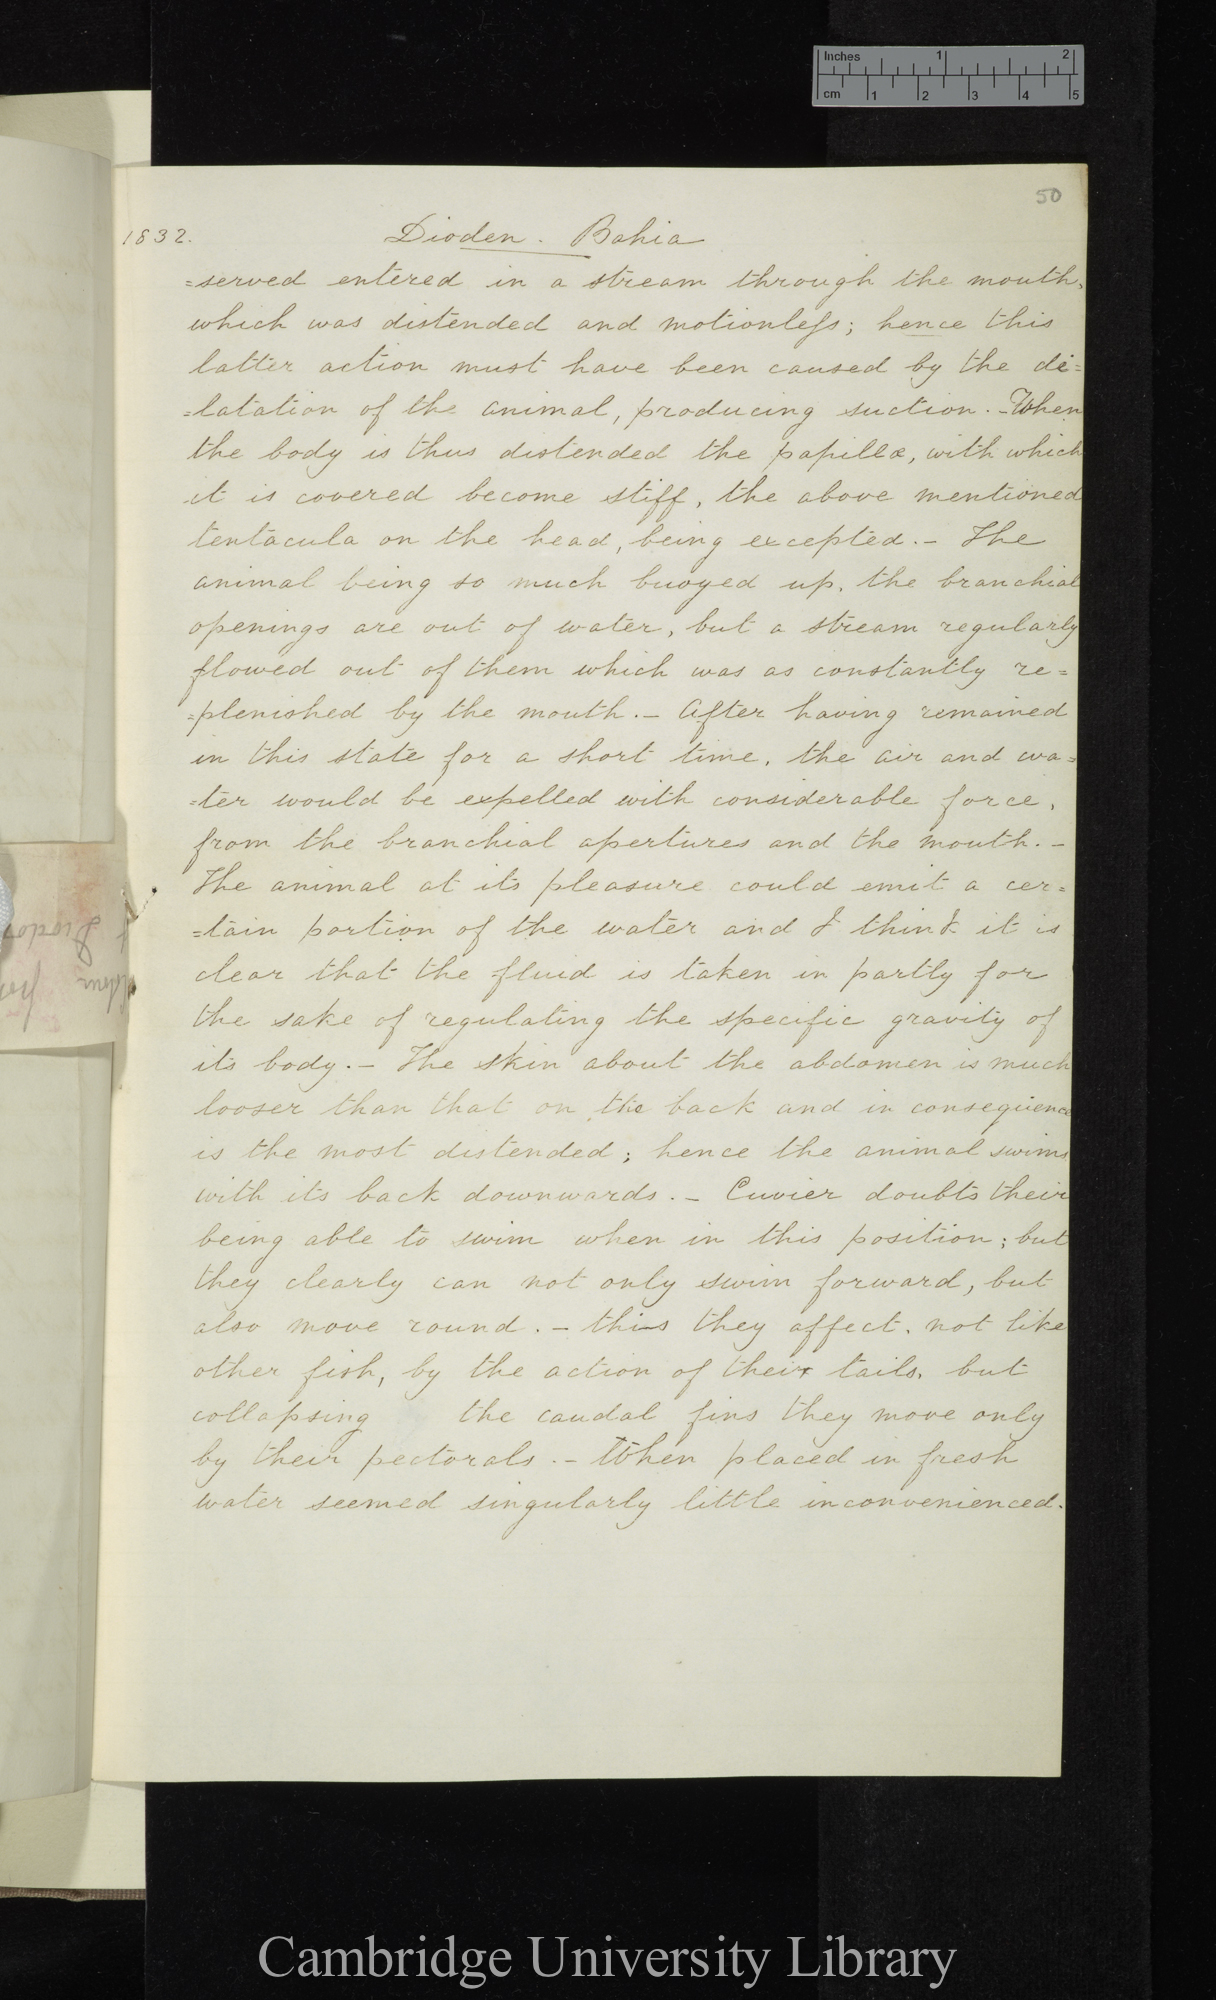 Inches 1 2
cm 1 2 3 4 5
50
1832. Dioden. Bahia
=served entered in a stream through the mouth,
which was distended and motionleſs; hence this
latter action must have been caused by the di=
=latation of the animal, producing suction. - When
the body is thus distended the papillæ, with which
it is covered become stiff, the above mentioned
tentacula on the head, being excepted. - The
animal being so much buoyed up, the branchial
openings are out of water, but a stream regularly
flowed out of them which was as constantly re=
=plenished by the mouth. - After having remained
in this state for a short time, the air and wa=
=ter would be expelled with considerable force,
from the branchial apertures and the mouth. -
The animal at its pleasure could emit a cer=
=tain portion of the water and I think it is
clear that the fluid is taken in partly for
the sake of regulating the specific gravity of
its body. - The skin about the abdomen is much
looser than that on the back and in consequence
is the most distended; hence the animal swims
with its back downwards. - Cuvier doubts their
being able to swim when in this position; but
they clearly can not only swim forward, but
also move round. - this they affect, not like
other fish, by the action of their tails, but
collapsing the caudal fins they move only
by their pectorals. - When placed in fresh
water seemed singularly little inconvenienced.
Cambridge University Library